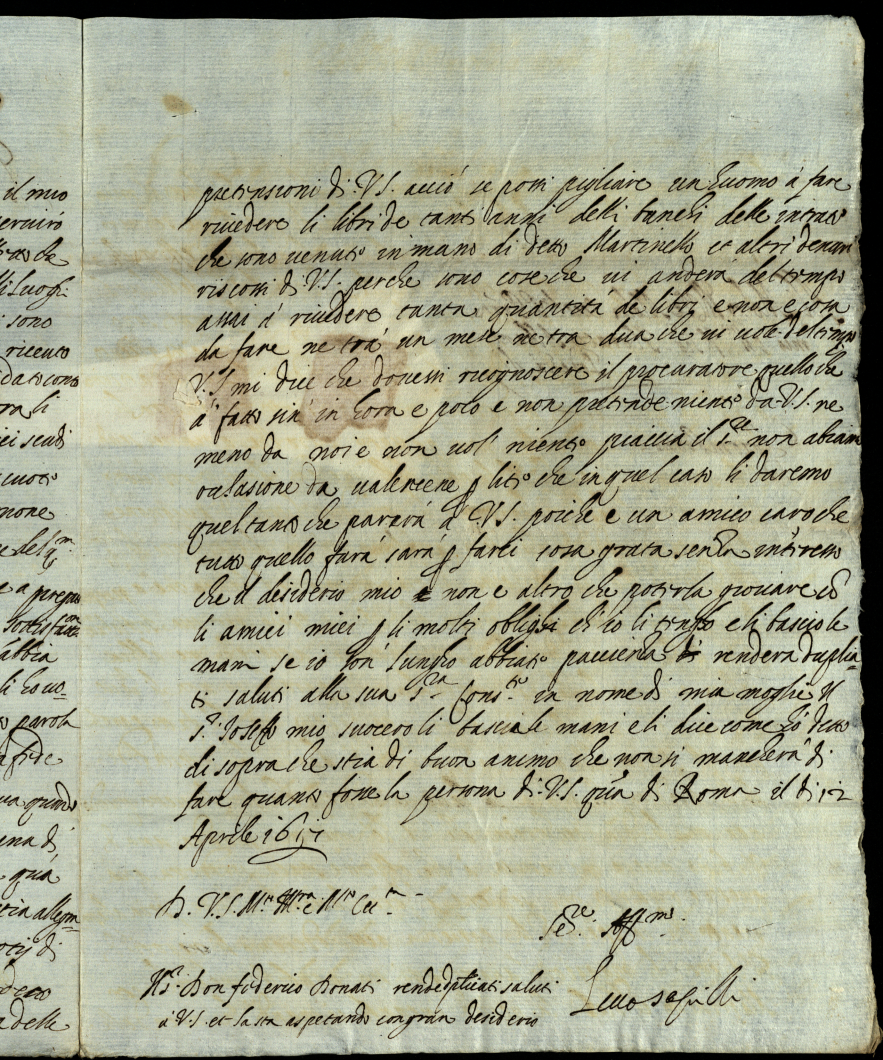 il mio
servirò
che
luoghi
sono
ricevuto
dato conto
scudi
none
del qm.
a pregar
abbia
li ho vo=
parola
fide
quando
di
quà
allegra
di
detto
delle
pretensioni di V.S. acciò se possi pigliare un huomo à fare
rivedere li libri de tanti anni delli banchi delle intrate
che sono venute in mano di detto Martinello et altri denari
riscossi di V.S. perche sono cose che vi anderà del tempo
assai à rivedere tanta quantità de libri e non è cosa
da fare ne trà un mese ne tra dua che vi vole del tempo
V.S. mi dice che dovessi ricognoscere il procuratore quello che
à fatto sin' in hora e poco e non pretende niente da V.S. ne
meno da noi e non vol' niente piaccia il Sre non abiam
occasione da valercene p lite che in quel caso li daremo
quel tanto che parerà à V.S. poiche è un amico caro che
tutto quello farà sarà p farci cosa grata senza interesse
che il desiderio mio è non è altro che poterla giovare cō
li amici miei p li molti oblighi ch'io li tengo e li bascio le
mani se io son' lungho abbiate pacienza renderà duplica
ti saluti alla sua Sra Conste in nome di mia moglie Il
Sr Josefo mio suocero li bascia le mani e li dice come hò detto
di sopra che stia di buon animo che non si mancherà di
fare quanto fosse la persona di V.S. quà di Roma il dì 12
Aprile 1651
D. V.S. Mto
Sere Affmo
Il Sr Don foderico Donati rende duplicati saluti
à V.S. et la sta aspetando con gran desiderio